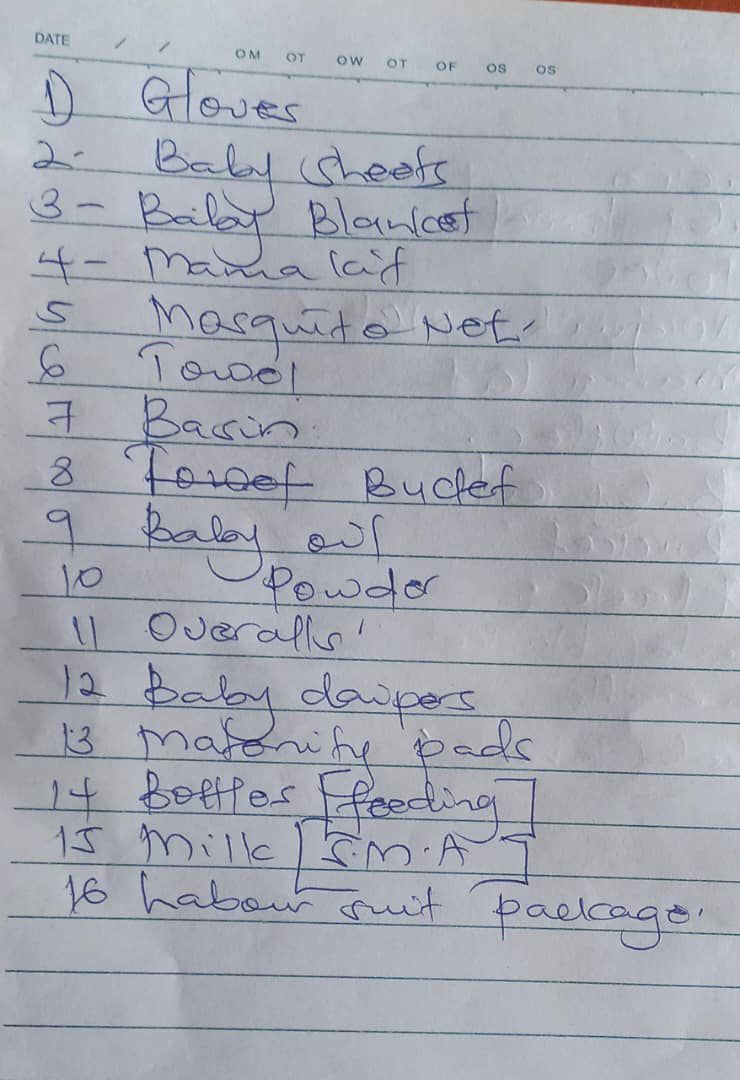 DATE / / OM OT OW OT OF OS OS
1) Gloves
2- Baby sheets
3 - Baby Blanket
4 - Mama kit
5 Mosquito Net.
6 Towel
7 Basin
8 Towel Bucket
9 Baby oil
10 Powder
11 Overalls
12 Baby daipers
13 Maternity pads
14 Bottles [feeding]
15 Milk [S.M.A]
16 Labour suit package.